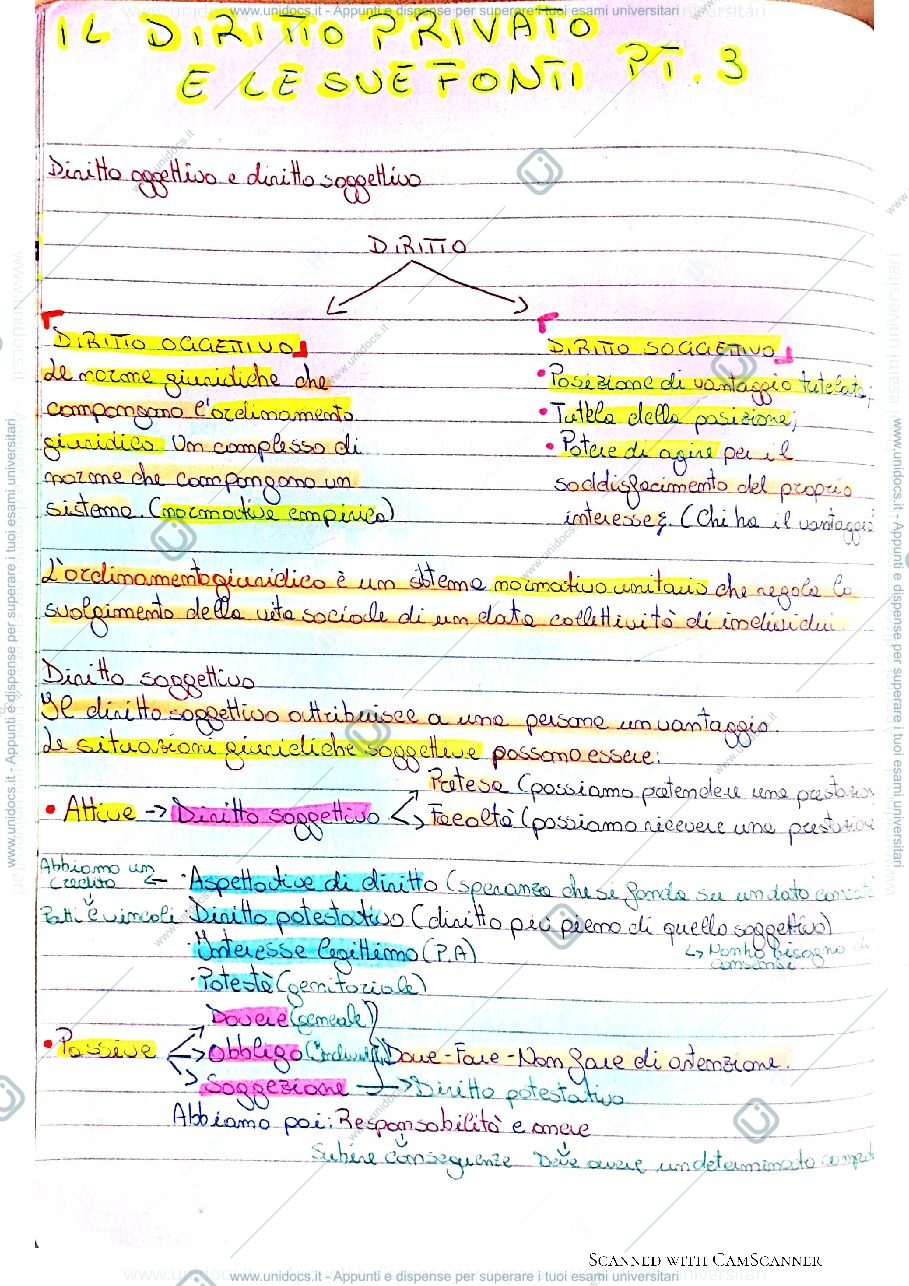 www.unidocs.it - Appunti e dispense per superare i tuoi esami universitari
IL DIRITTO PRIVATO
E LE SUE FONTI PT. 3
Diritto oggettivo e diritto soggettivo
DIRITTO
DIRITTO OGGETTIVO
Le norme giuridiche che
compongono l'ordinamento
giuridico. Un complesso di
norme che compongono un
sistema. (normative empirico)
DIRITTO SOGGETTIVO
• Posizione di vantaggio tutelata;
• Tutela della posizione;
• Potere di agire per il
soddisfacimento del proprio
interesse. (Chi ha il vantaggio
L'ordinamento giuridico è un sistema normativo unitario che regola lo
svolgimento della vita sociale di un data collettività di individui.
Diritto soggettivo
Il diritto soggettivo attribuisce a una persona un vantaggio.
Le situazioni giuridiche soggettive possono essere:
Pretesa (possiamo pretendere una
• Attive -> Diritto soggettivo
Facoltà (possiamo ricevere una
Abbiamo un
credito
· Aspettative di diritto (speranza che si fonda su un dato
Patti e vincoli
· Diritto potestativo (diritto più pieno di quello soggettivo)
· Interesse legittimo (P.A)
Non ho bisogno di
consensi
· Potestà (genitoriale)
Dovere (generale)
• Passive
Obbligo
Dare - Fare - Non fare di astensione.
Soggezione -> Diritto potestativo
Abbiamo poi: Responsabilità e onere
Subire conseguenze Deve avere un determinato
SCANNED WITH CAMSCANNER
www.unidocs.it - Appunti e dispense per superare i tuoi esami universitari